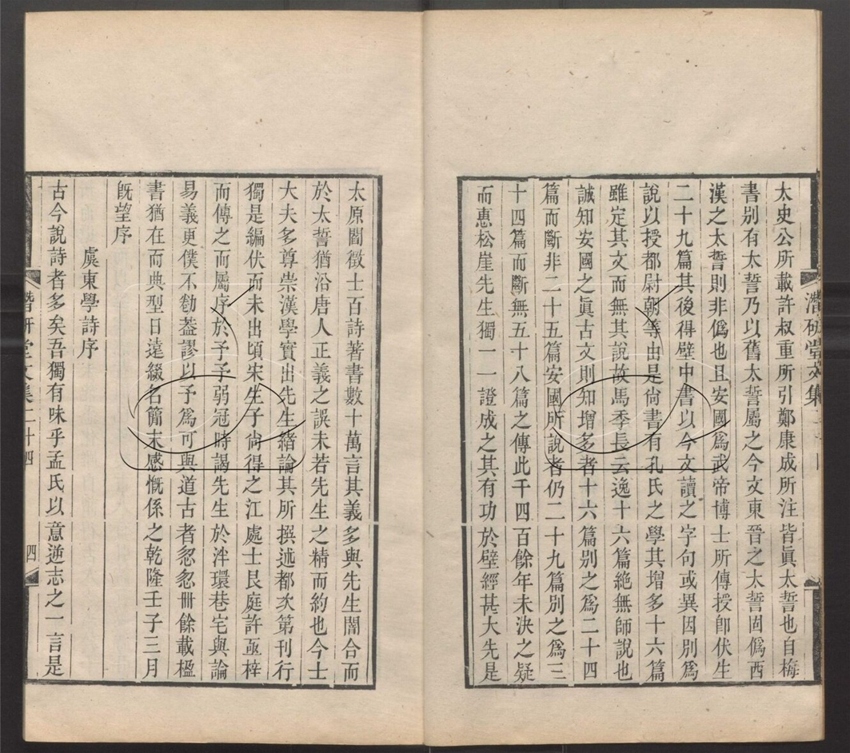 太史公所載許叔重所引鄭康成所注皆眞太誓也自梅
書別有太誓乃以舊太誓屬之今文東晉之太誓固僞西
漢之太誓則非僞也且安國爲武帝博士所傳授卽伏生
二十九篇其後得壁中書以今文讀之字句或異因別爲
說以授都尉朝等由是尙書有孔氏之學其增多十六篇
雖定其文而無其說故馬季長云逸十六篇絶無師說也
誠知安國之眞古文則知增多者十六篇別之爲二十四
篇而斷非二十五篇安國所說者仍二十九篇別之爲三
十四篇而斷無五十八篇之傳此千四百餘年未決之疑
而惠松崖先生獨一一證成之其有功於壁經甚大先是
潛研堂文集
太原閻徵士百詩著書數十萬言其義多與先生闇合而
於太誓猶沿唐人正義之誤未若先生之精而約也今士
大夫多尊崇漢學實出先生緒論其所撰述都次第刊行
獨是編伏而未出頃宋生子尙得之江處士艮庭許亟梓
而傳之而屬序於予予弱冠時謁先生於泮環巷宅與論
易義更僕不勌葢謬以予爲可與道古者忽忽卌餘載楹
書猶在而典型日遠綴名簡末感慨係之乾隆壬子三月
旣望序
虞東學詩序
古今說詩者多矣吾獨有味乎孟氏以意逆志之一言是
潛研堂文集二十四
四